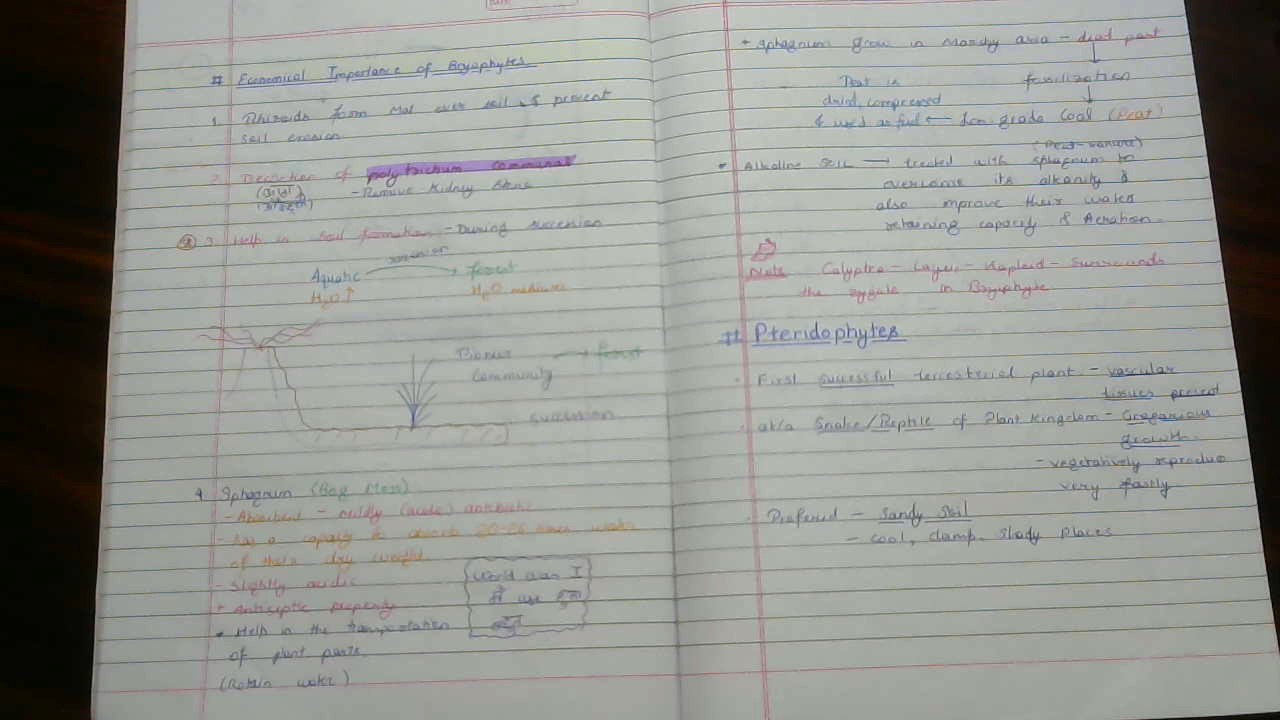 # Economical Importance of Bryophytes
1. Rhizoids form Mat over soil & prevent
soil erosion
2. Decoction of polytrichum commune
(काढ़ा)
- Remove Kidney stone
3. Help in soil formation - During succession
succession
Aquatic → forest
H2O ↑ H2O medium
Pioneer → forest
Community
succession
4 Sphagnum (Bog Moss)
- Absorbent - mildly (acidic) antibiotic
- has a capacity to absorb 20-26 times water
of their dry weight
- Slightly acidic
+ Antiseptic property
• Help in the transportation
of plant parts.
(Retain water)
World war I
में use
+ Sphagnum grow in Marshy area - dead part
↓
Peat is fossilization
dried, compressed ↓
& used as fuel ← low grade coal (Peat)
(Peat-manure)
• Alkaline soil → treated with sphagnum to
overcome its alkanity &
also improve their water
retaining capacity & Aeration.
Note Calyptra - Layer - Haploid - Surrounds
the zygote in Bryophyte
# Pteridophytes
• First successful terrestrial plant - vascular
tissues present
• aka Snake/Reptile of Plant Kingdom - Gregarious
growth.
- vegetatively reproduce
very fastly
• Preferred - sandy soil
- cool, damp, shady places